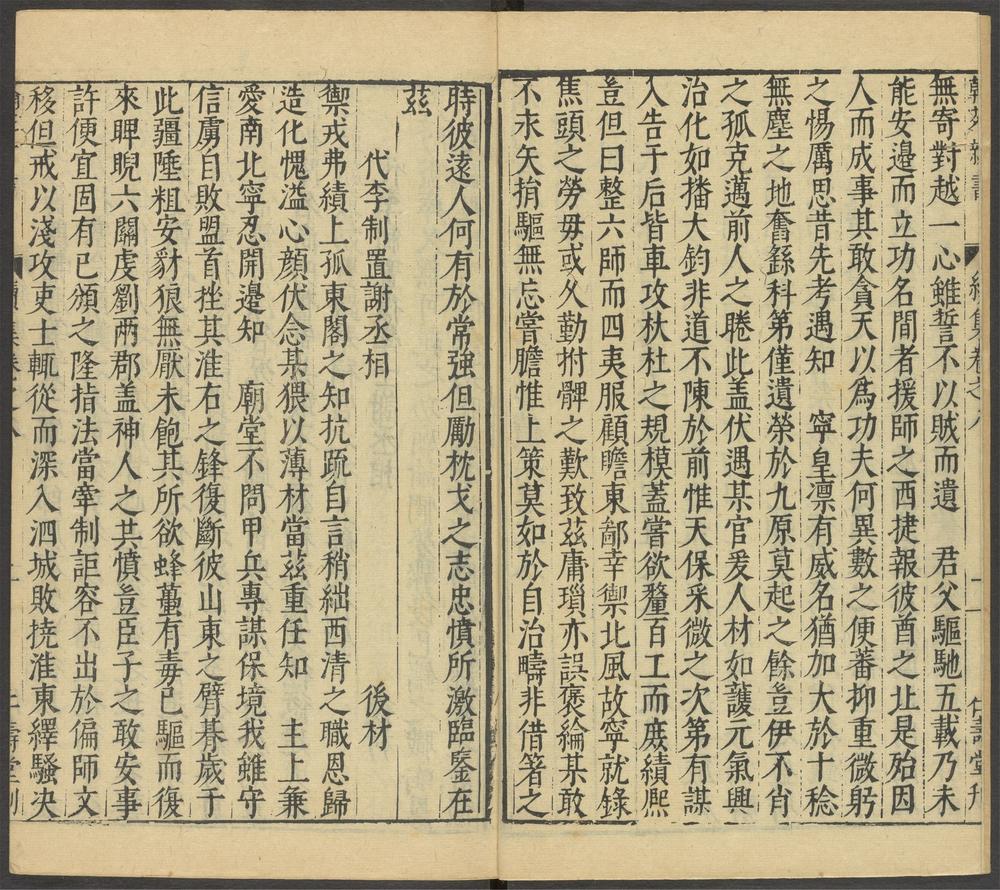 翰苑新書 續集卷之八 二 仁壽堂刊
無寄對越一心雖誓不以賊而遺 君父驅馳五載乃未
能安邊而立功名間者援師之西捷報彼酋之北是殆因
人而成事其敢貪天以爲功夫何異數之便蕃抑重微躬
之惕厲思昔先考遇知 寧皇凛有威名猶加大於十稔
無塵之地奮繇科第僅遺榮於九原莫起之餘豈伊不肖
之孤克邁前人之睠此盖伏遇某官爰人材如護元氣興
治化如播大鈞非道不陳於前惟天保采微之次第有謀
入告于后皆車攻杕杜之規模蓋嘗欲釐百工而庶績熈
豈但曰整六師而四夷服顧瞻東鄙幸禦北風故寧就錄
焦頭之勞毋或久勤拊髀之歎致茲庸瑣亦誤褒綸某敢
不求矢捐驅無忘嘗膽惟上策莫如於自治疇非借箸之
時彼遠人何有於常強但勵枕戈之志忠憤所激臨鑒在
茲
代李制置謝丞相 後材
禦戎弗績上孤東閣之知抗疏自言稍絀西清之職恩歸
造化愧溢心顔伏念某猥以薄材當茲重任知 主上兼
愛南北寧忍開邊知 廟堂不問甲兵專謀保境我雖守
信虜自敗盟首挫其淮右之鋒復斷彼山東之臂朞歲于
此疆陲粗安豺狼無厭未飽其所欲蜂蠆有毒已驅而復
來睥睨六關虔劉兩郡盖神人之共憤豈臣子之敢安事
許便宜固有已頒之隆指法當宰制詎容不出於偏師文
移但戒以淺攻吏士輒從而深入泗城敗撓淮東繹騷决
續集卷之八 仁壽堂刊